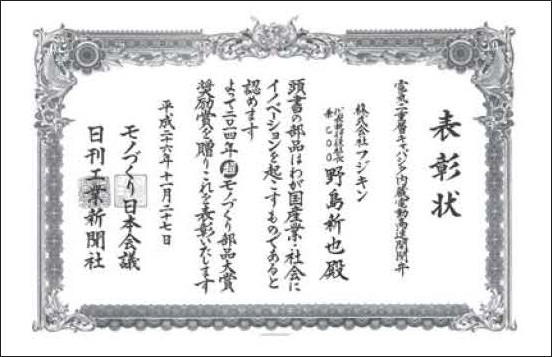 表彰状
電気二重層キャパシタ内蔵電動高速開閉弁
株式会社フジキン
兼COO 野島新也殿
頭書の部品はわが国産業・社会に
イノベーションを起こすものであると
認めます
よって二〇一四年超モノづくり部品大賞
奨励賞を贈りこれを表彰いたします
平成二十六年十一月二十七日
モノづくり日本会議
日刊工業新聞社